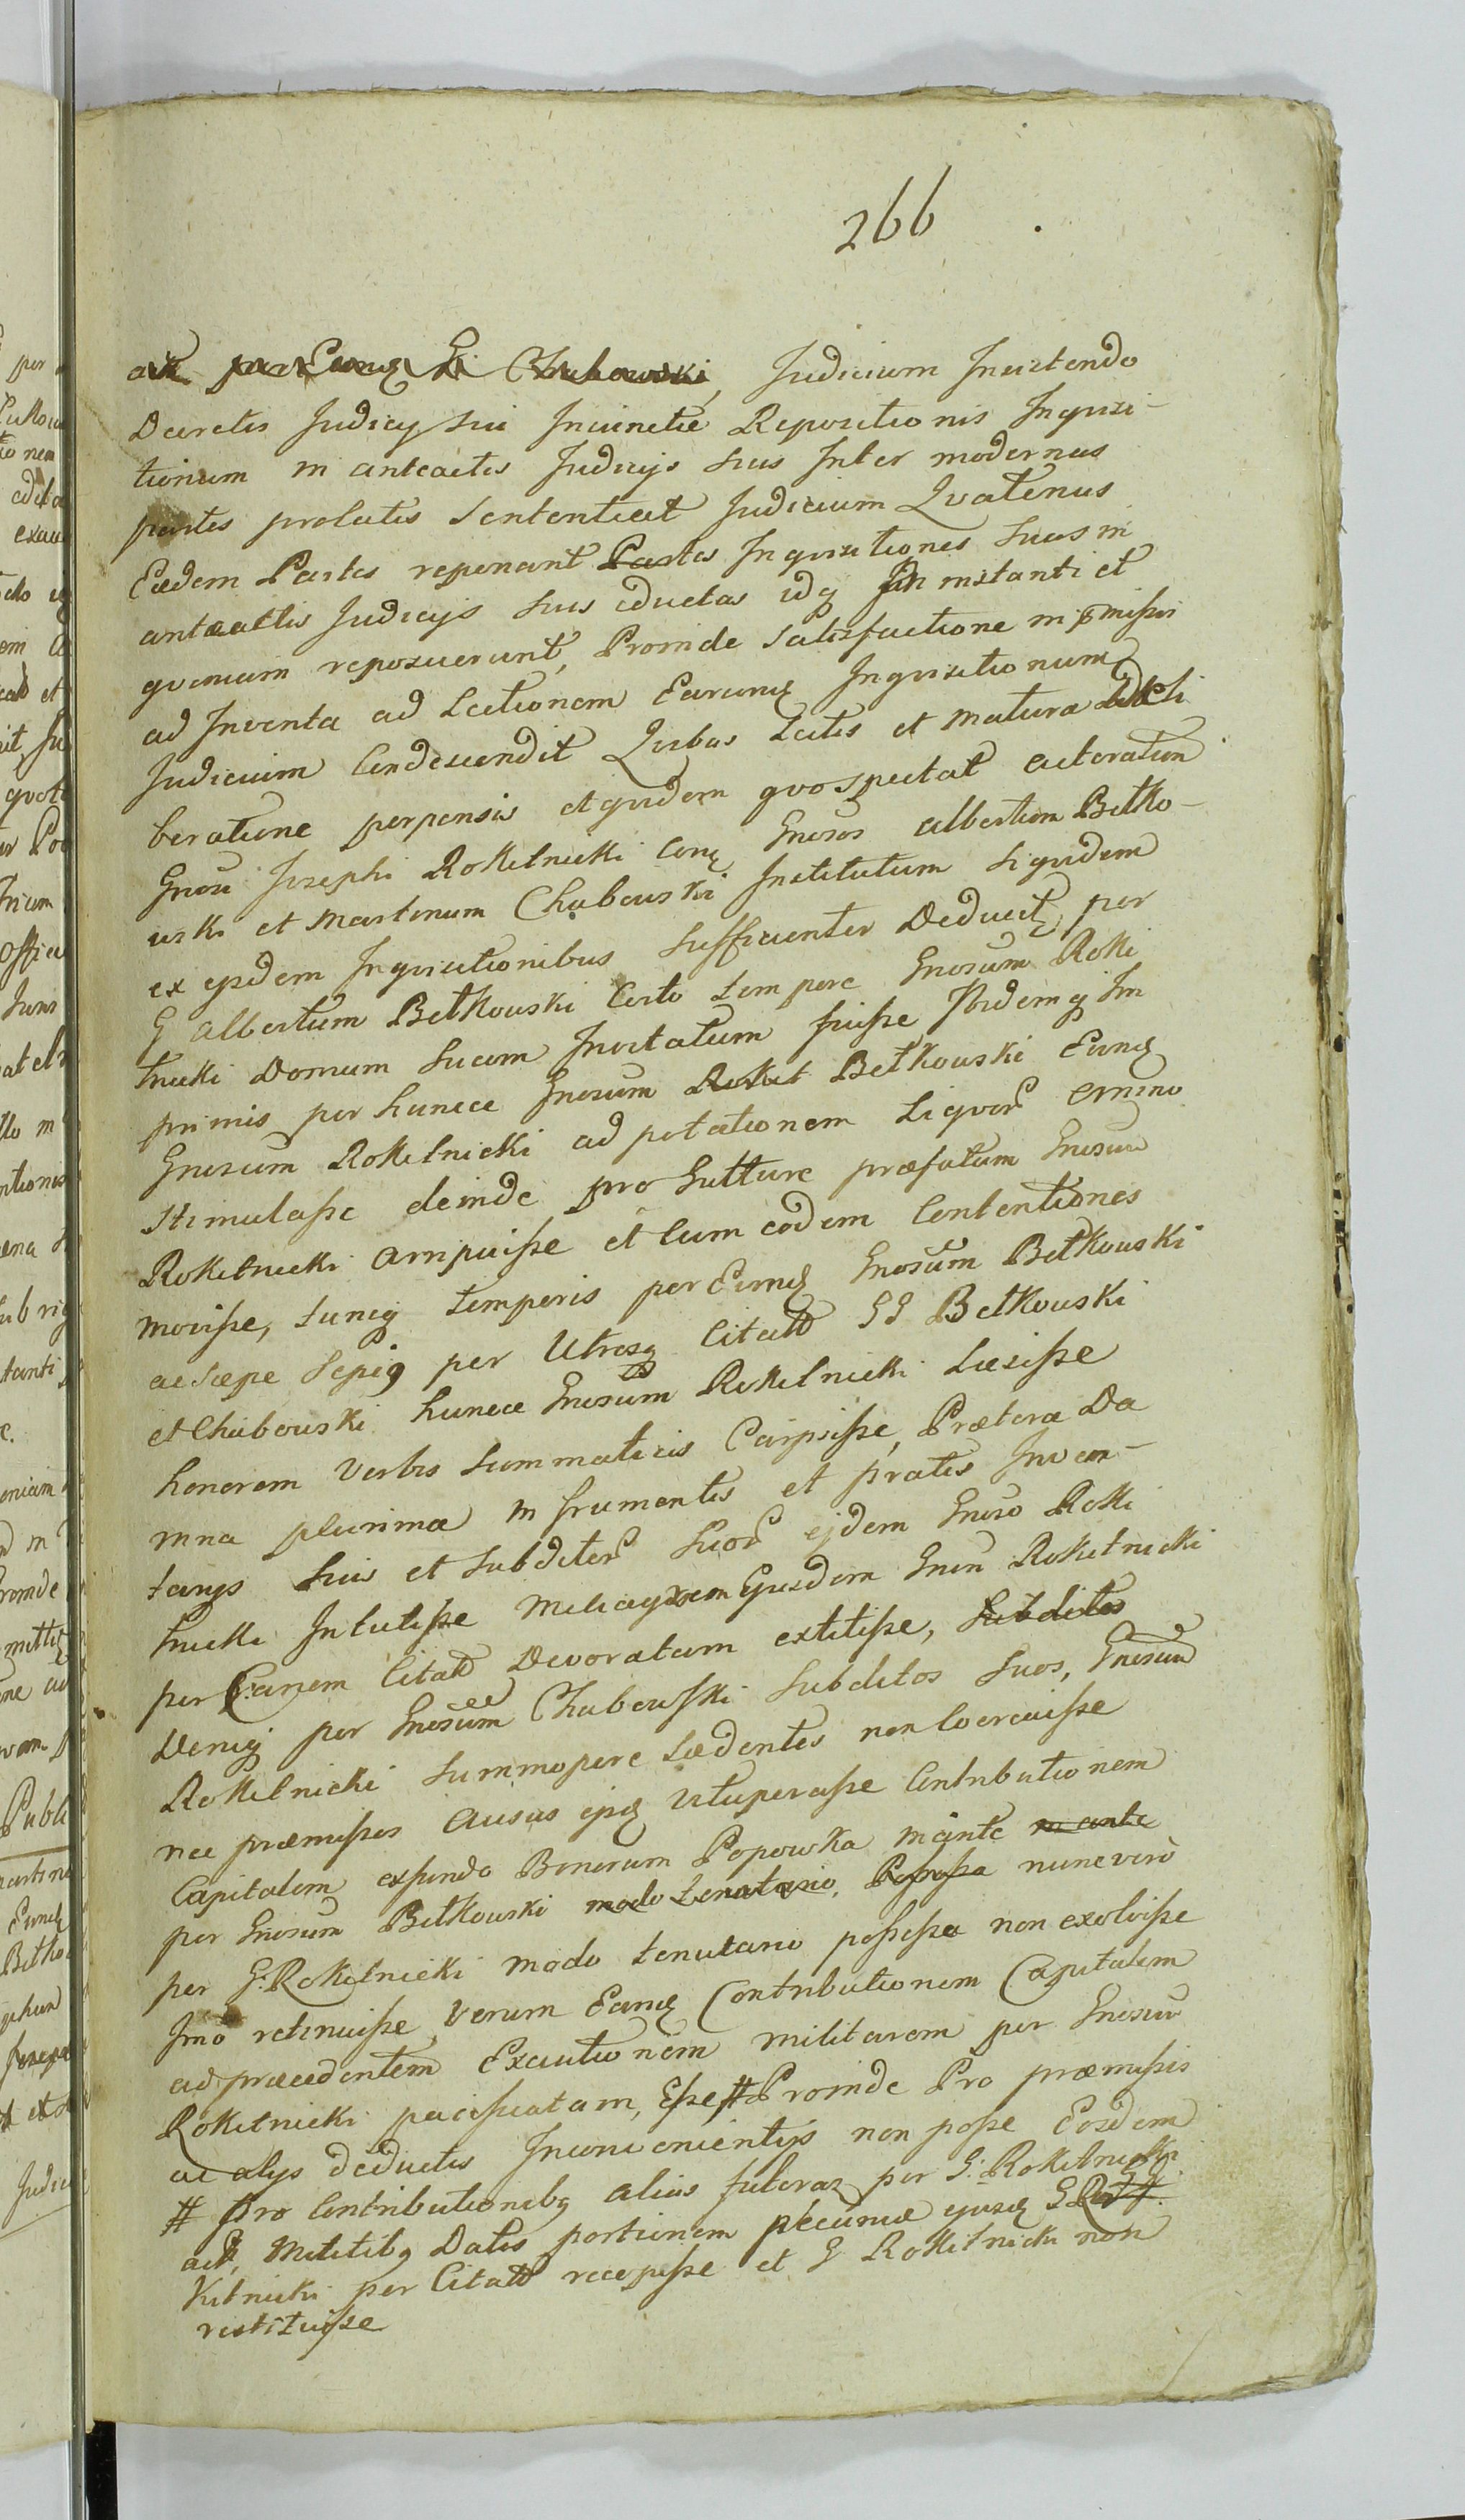 266
Judicium Insistendo
Decretis Judicy sui Iniunctie Repositionis Inquisi-
tionum in anteactis Judicijs suis Inter modernas
partes prolatis Sententiat Judicium Qvatenus
Eaedem Partes reponant Partes Inqvisitiones suas in
anteactis Judicijs suis eductas idq in instanti et
qvoniam reposuerunt, Proinde Satisfactione in pmissis
ad Inventa ad Lectionem Earunq Inqvisitionum
Judicium Condescendit Qvibus Lectis et matura deli
beratione perpensis et qvidem qvo Spectat actoratum
Gnosi Josephi Rokitnicki Conq Gnosos Albertum Betko-
wski et Martinum Chubowski Institutum siqvidem
ex ejsdem Inqvisitionibus Sufficienter Deducit, per
G Albertum Betkowski Certo tempore Gnosum Roki
tnicki Domum Suam Invitatum fuisse Ibidemq Im
primis per hunce Gnosum Rokit Betkowski Eunq
Gnosum Rokitnicki ad potationem Liqvor Cremino
Stimulasse deinde pro Gutture praefatum Gnosum
Rokitnicki arripuisse et Cum eodem Contentiones
movisse, tuncq temporis per Eunq Gnosum Betkowski
ac saepe Sepiq per Utrosq Citatt GG Betkowski
et Chubowski hunce Gnosum Rokitnicki Laesisse
honorem Verbis Summaticis Carpsisse, Praeterea Da
mna plurima in frumentis et pratis Inven-
tarys Suis et Subditor Suor ejdem Gnoso Roki
tnicki Intulisse Ejusdem Gnosi Rokitnicki
per Canem Citatt Devoratam extitisse, Subditos
Deniq per Gnosum Chubowski Subditos Suos, Gnosum
Rokitnicki Summopere Laedentes non Coercuisse
nec praemissos Ausus ejsq Vituperasse Contributionem
Capitalem ex fundo Bonorum Popowka in ante
per Gnosum Betkowski modo tenutario Possessa nunc vero
per G. Rokitnicki modo tenutario possessa non exolvisse
Imo retinuisse, Verum Eanq Contributionem Capitalem
ad praecedentem Executionem militarem per Gnosum
Rokitnicki Esse # Proinde Pro praemissis
ac alys deductis Inconvenientys non posse Eosdem
# pro Contributionibq alias per G: Rokitnicki
Militibq Datis portionem pecuniae ejusq G
Kitnicki per Citatt recepisse et G Rokitnicki non
restituisse